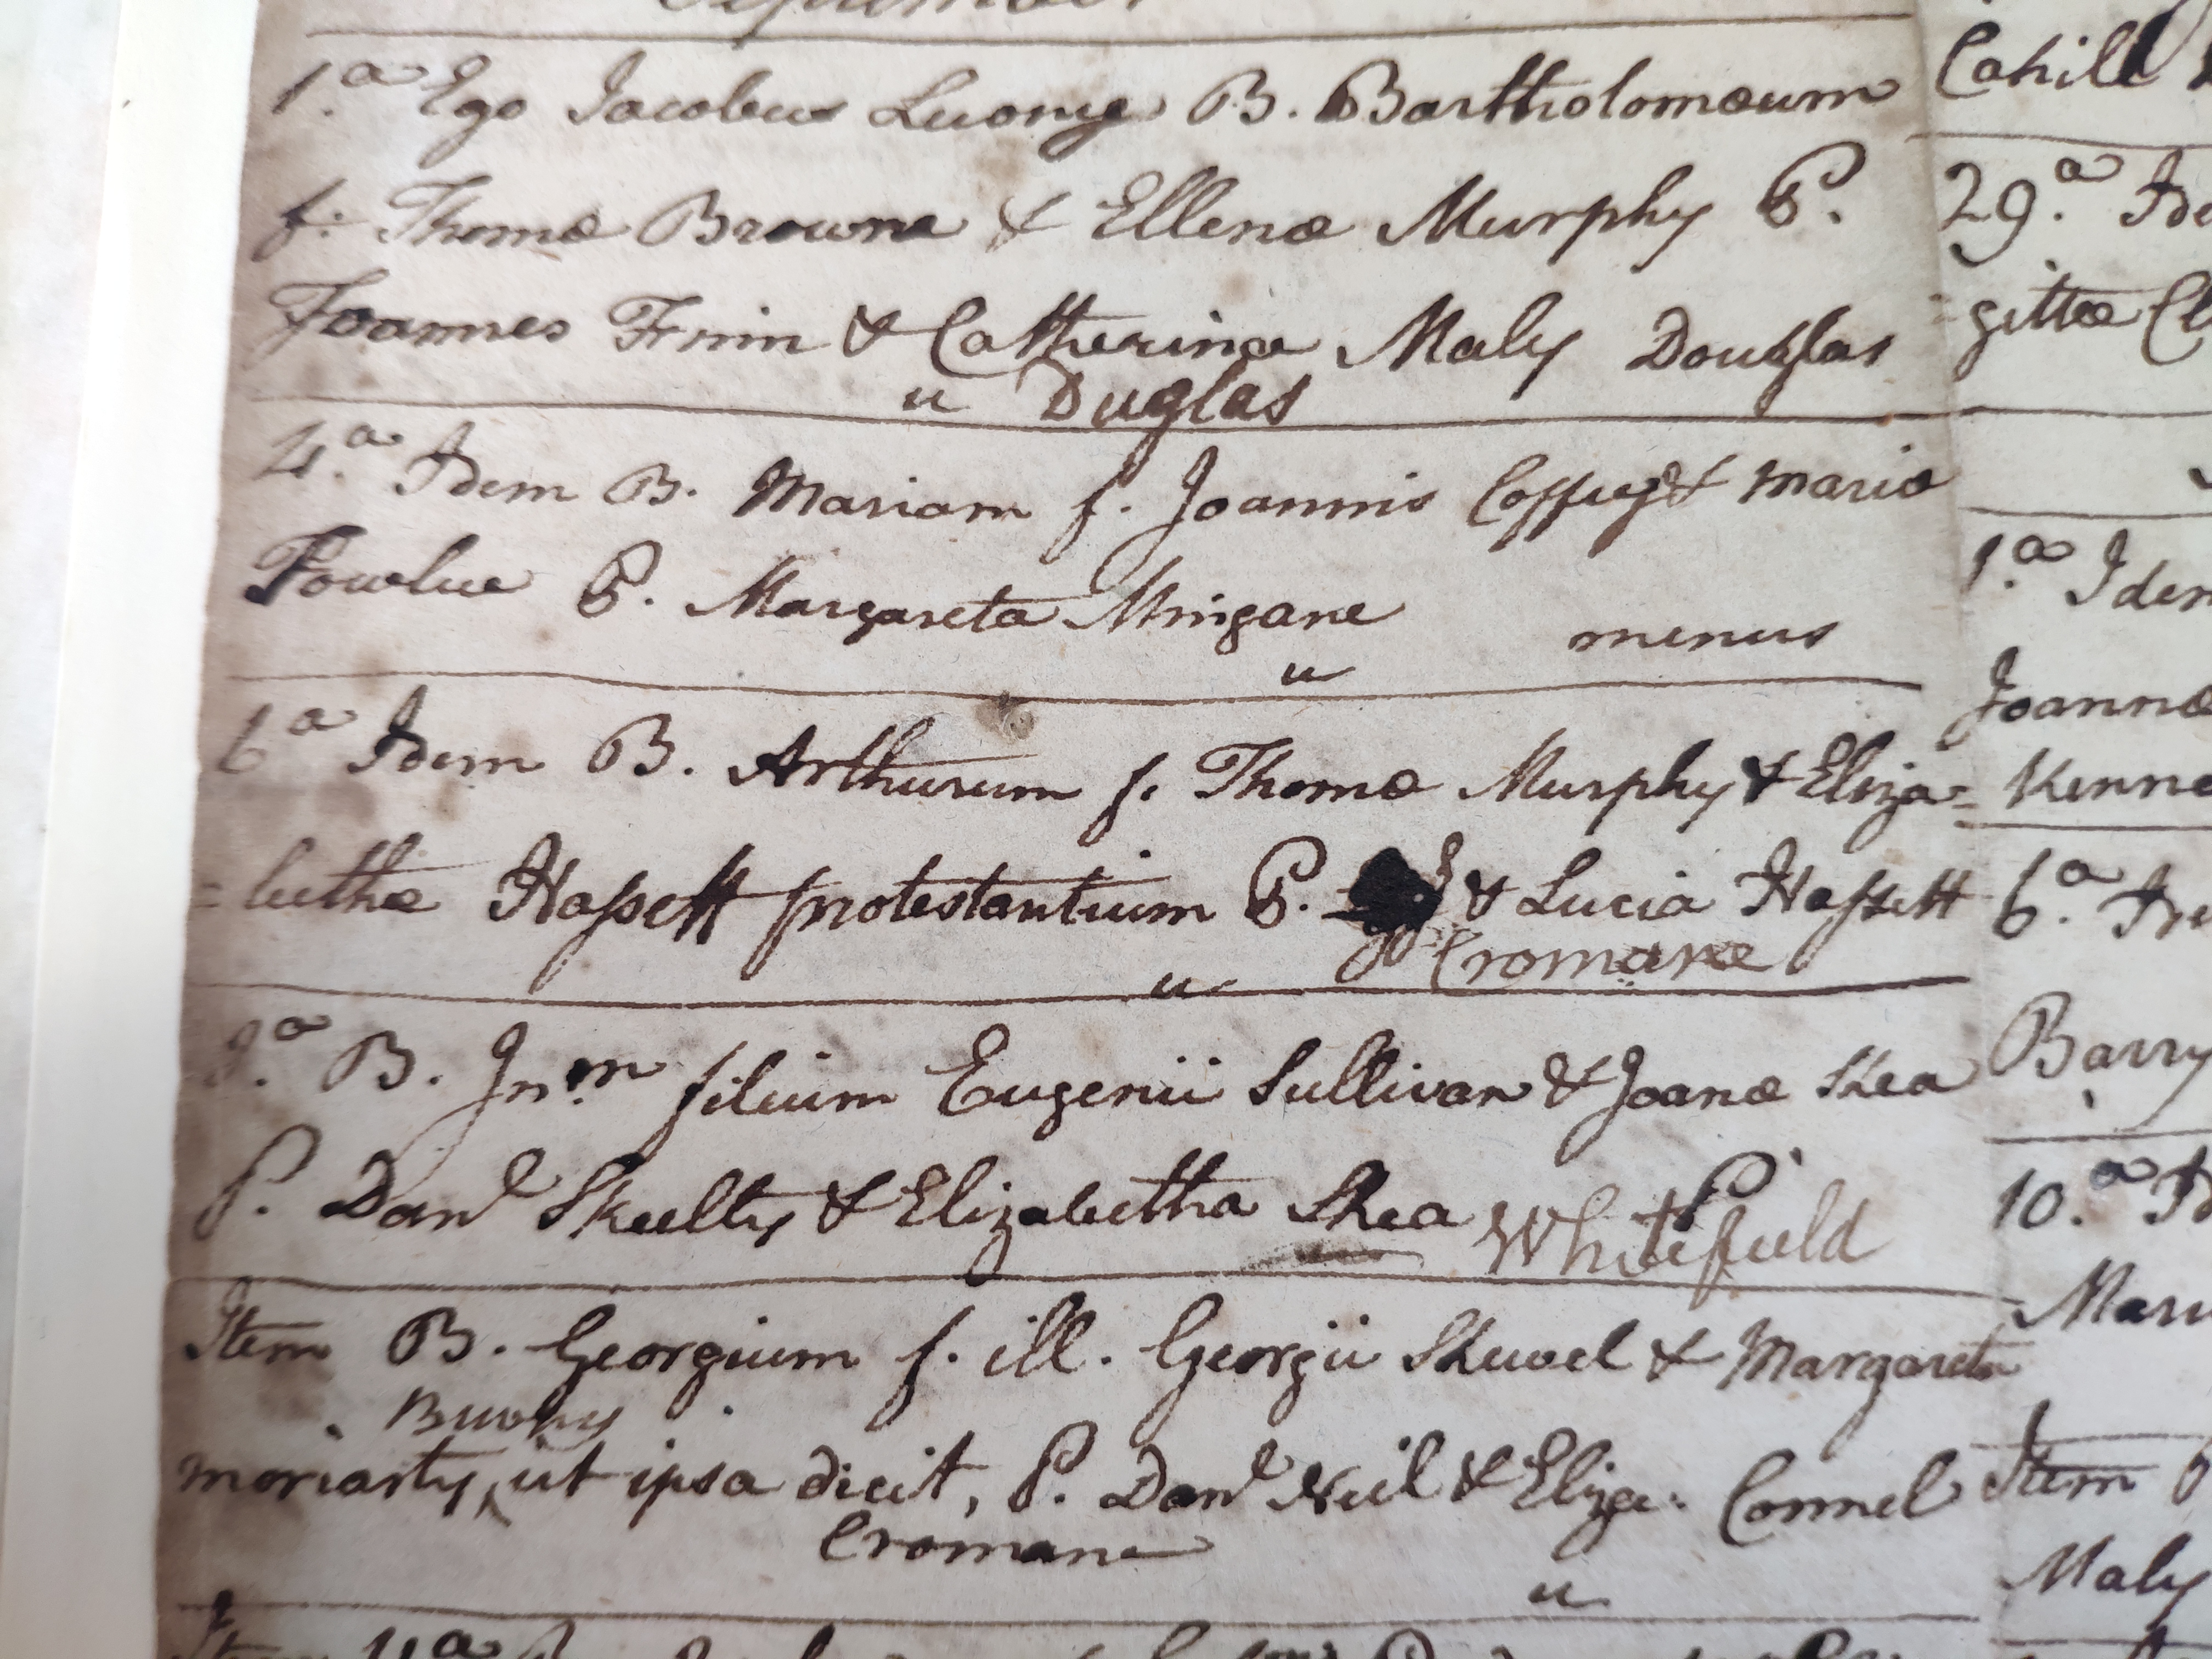 1.a Ego Jacobus Luony B. Bartholomæum
f. Thomæ Browne & Ellenæ Murphy P.
Joannes Frin & Catherina Maly Douglas
u Duglas
4.a Idem B. Mariam f. Joannis Coffey & Mariæ
P. Margareta Mingane
menus
u
6a Idem B. Arthurum f. Thomæ Murphy & Eliza=
=bethæ Hassett protestantium P. & Lucia Hassett
Cromane
u
B. Jn.m filium Eugenii Sullivan & Joanæ Shea
P. Danl Skeelty & Elizabetha Shea P
Whitefield
Item B. Georgium f. ill. Georgii Shewel & Margareta
Buohy
Moriarty, ut ipsa dicit, P. Danl Neil & Eliza: Connel
Cromane
u
Cahill
29.a
gittæ
1.a Idem
Joannæ
Kenne
6.a
Barry
10.a
Item
Maly